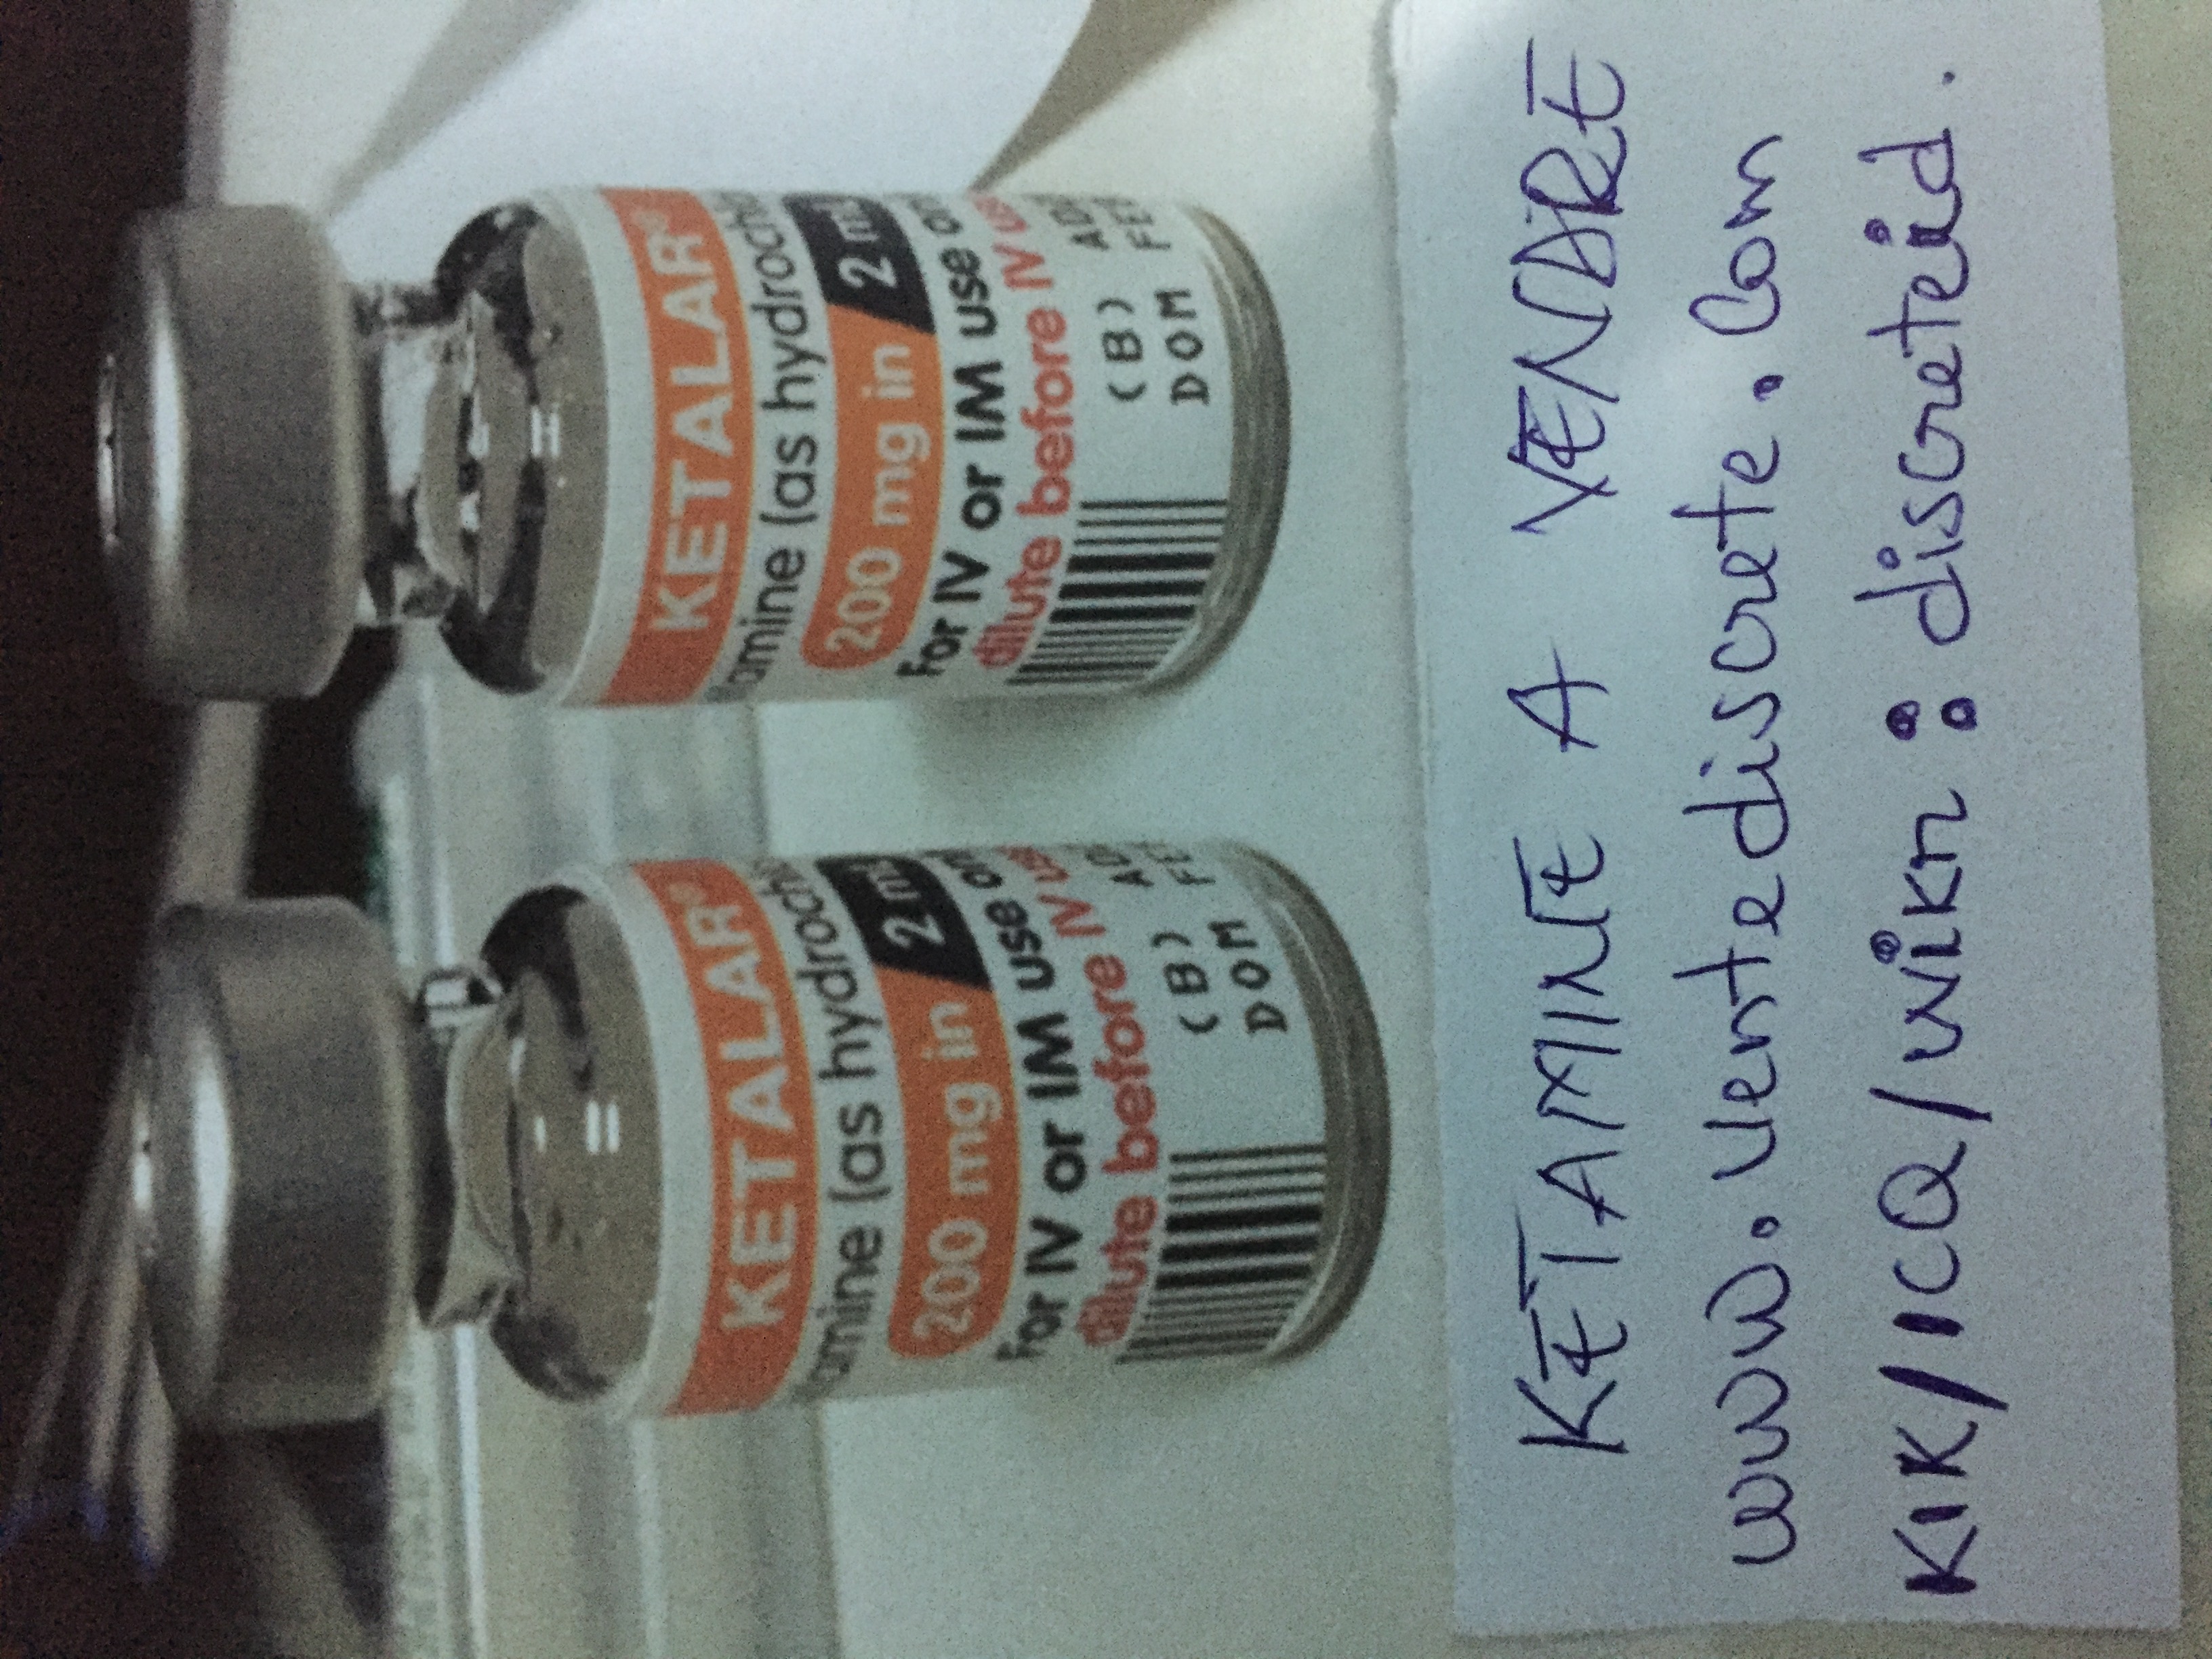 KETALAR®
amine (as hydrochlo
200 mg in 2 ml
For IV or IM use on
dilute before IV us
(B)
DOM
KETALAR®
amine (as hydrochlo
200 mg in 2 ml
For IV or IM use on
dilute before IV us
(B)
DOM
KETAMINE A VENDRE
www.ventediscrete.com
KIK/ICQ/wikr : discreteid.